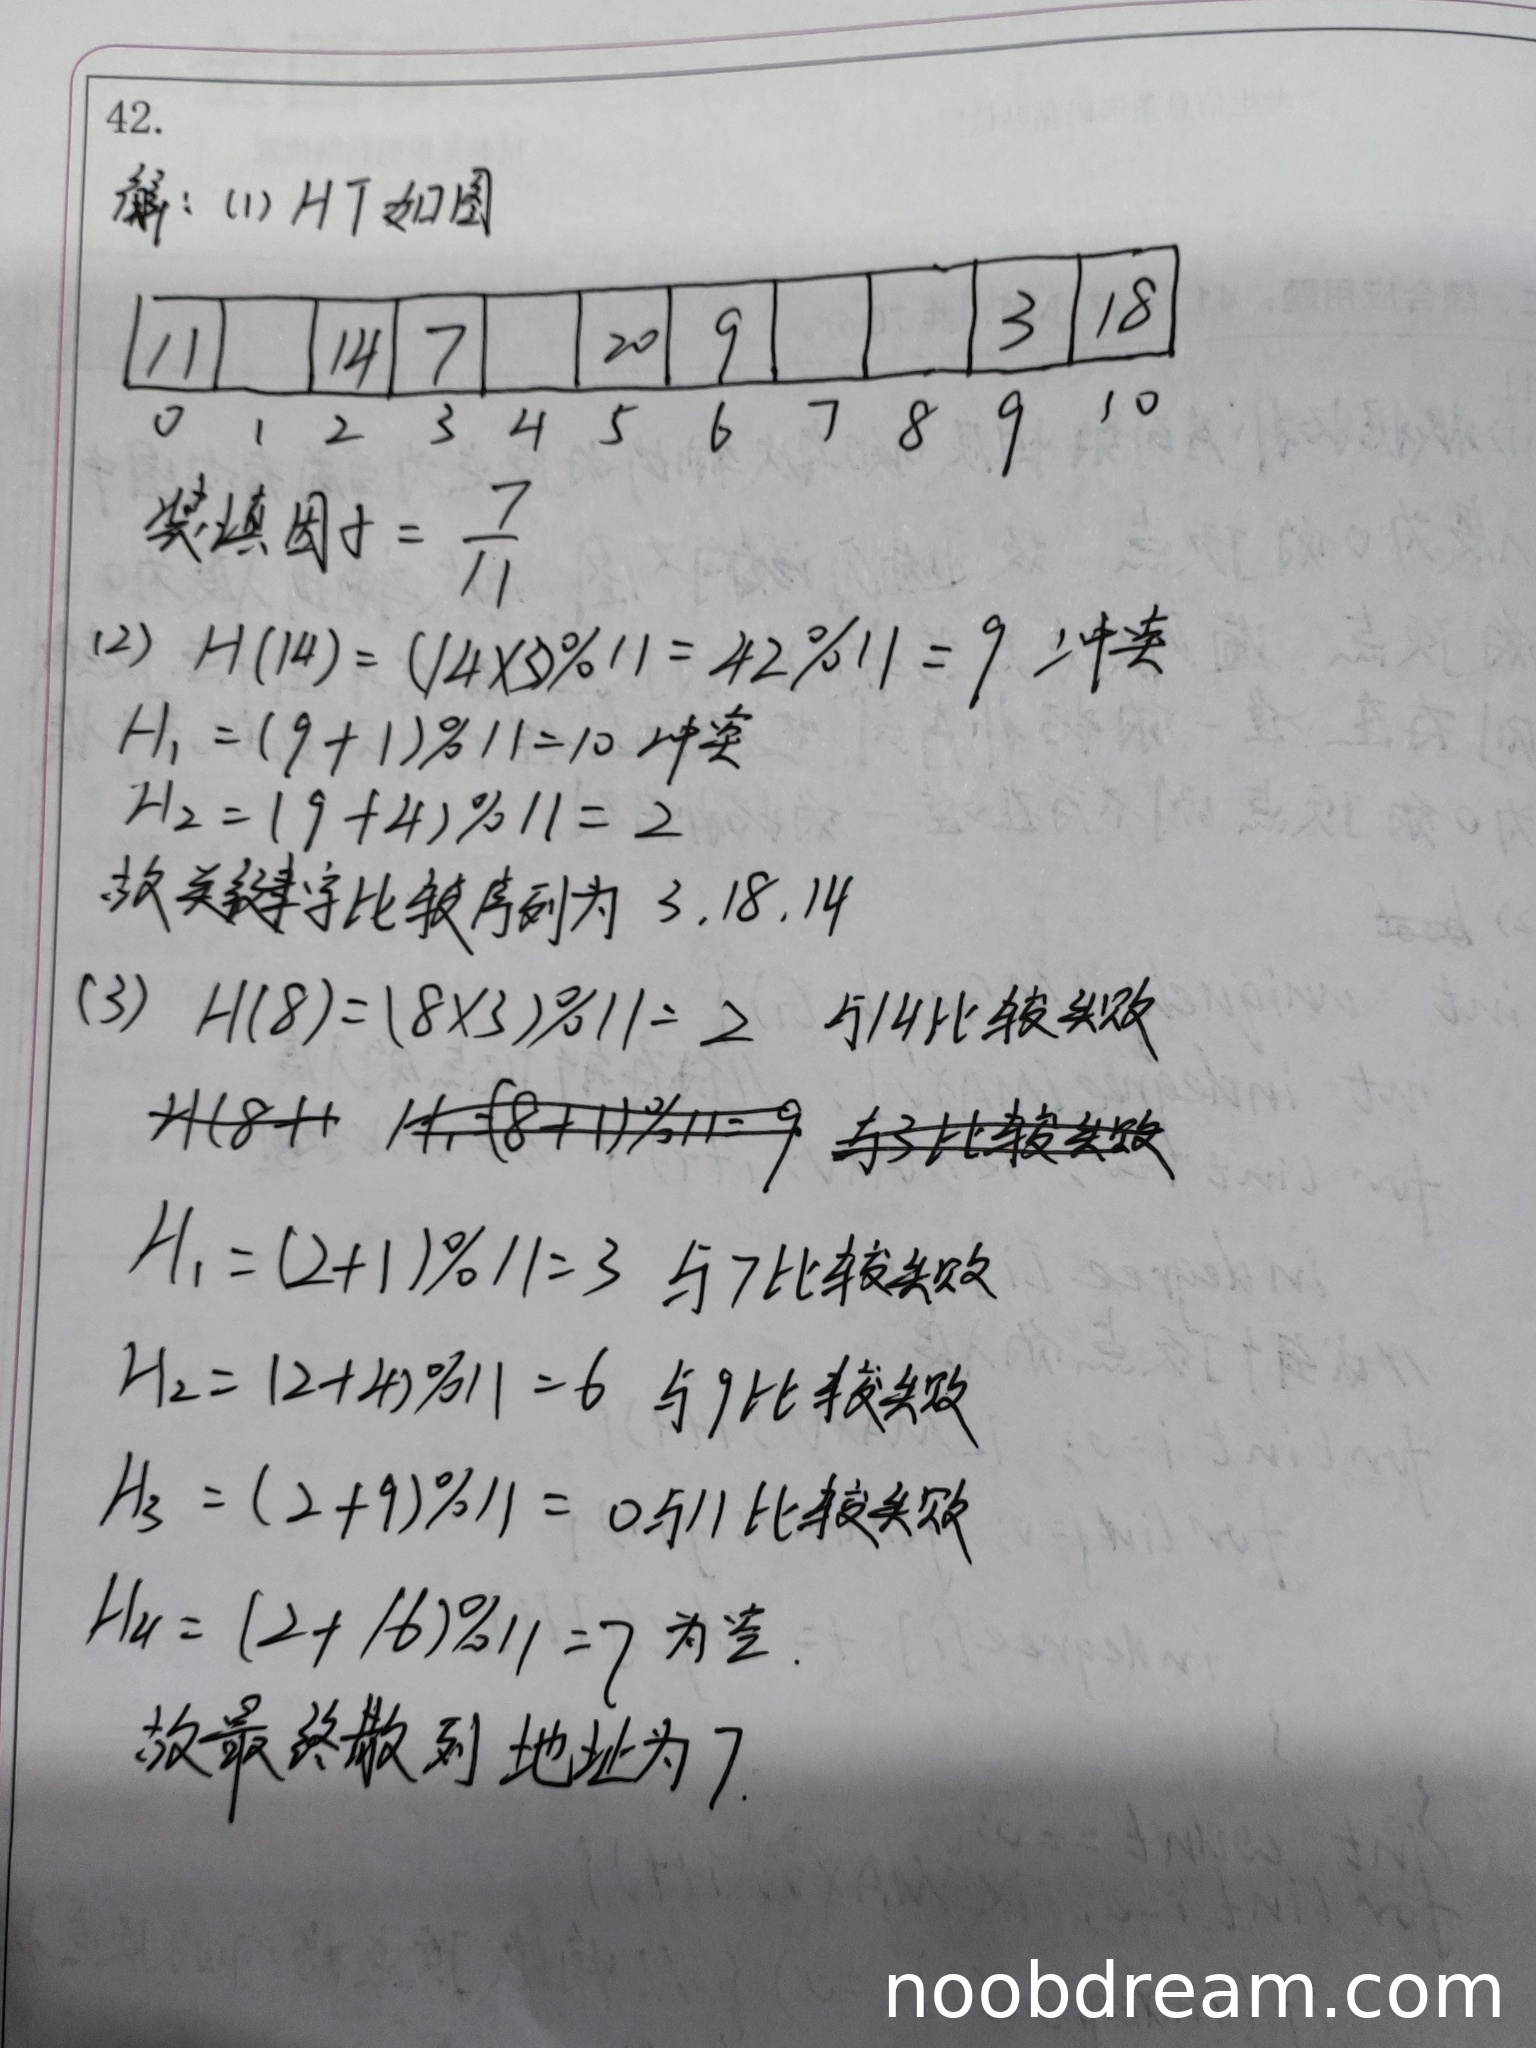 42.
解：(1) HT如图
11 14 7 20 9 3 18
0 1 2 3 4 5 6 7 8 9 10
装填因子 = 7/11
(2) H(14) = (14×3)%11 = 42%11 = 9 冲突
H₁ = (9+1)%11=10 冲突
H₂ = (9+4)%11 = 2
故关键字比较序列为 3.18.14
(3) H(8)=(8×3)%11= 2 与14比较失败
H(8+1 H₁=(8+1)%11=9 与3比较失败
H₁ = (2+1)%11=3 与7比较失败
H₂= (2+4)%11 =6 与9比较失败
H₃ = (2+9)%11 = 0与11比较失败
H₄ = (2+16)%11 =7 为空.
故最终散列地址为7.
noobdream.com